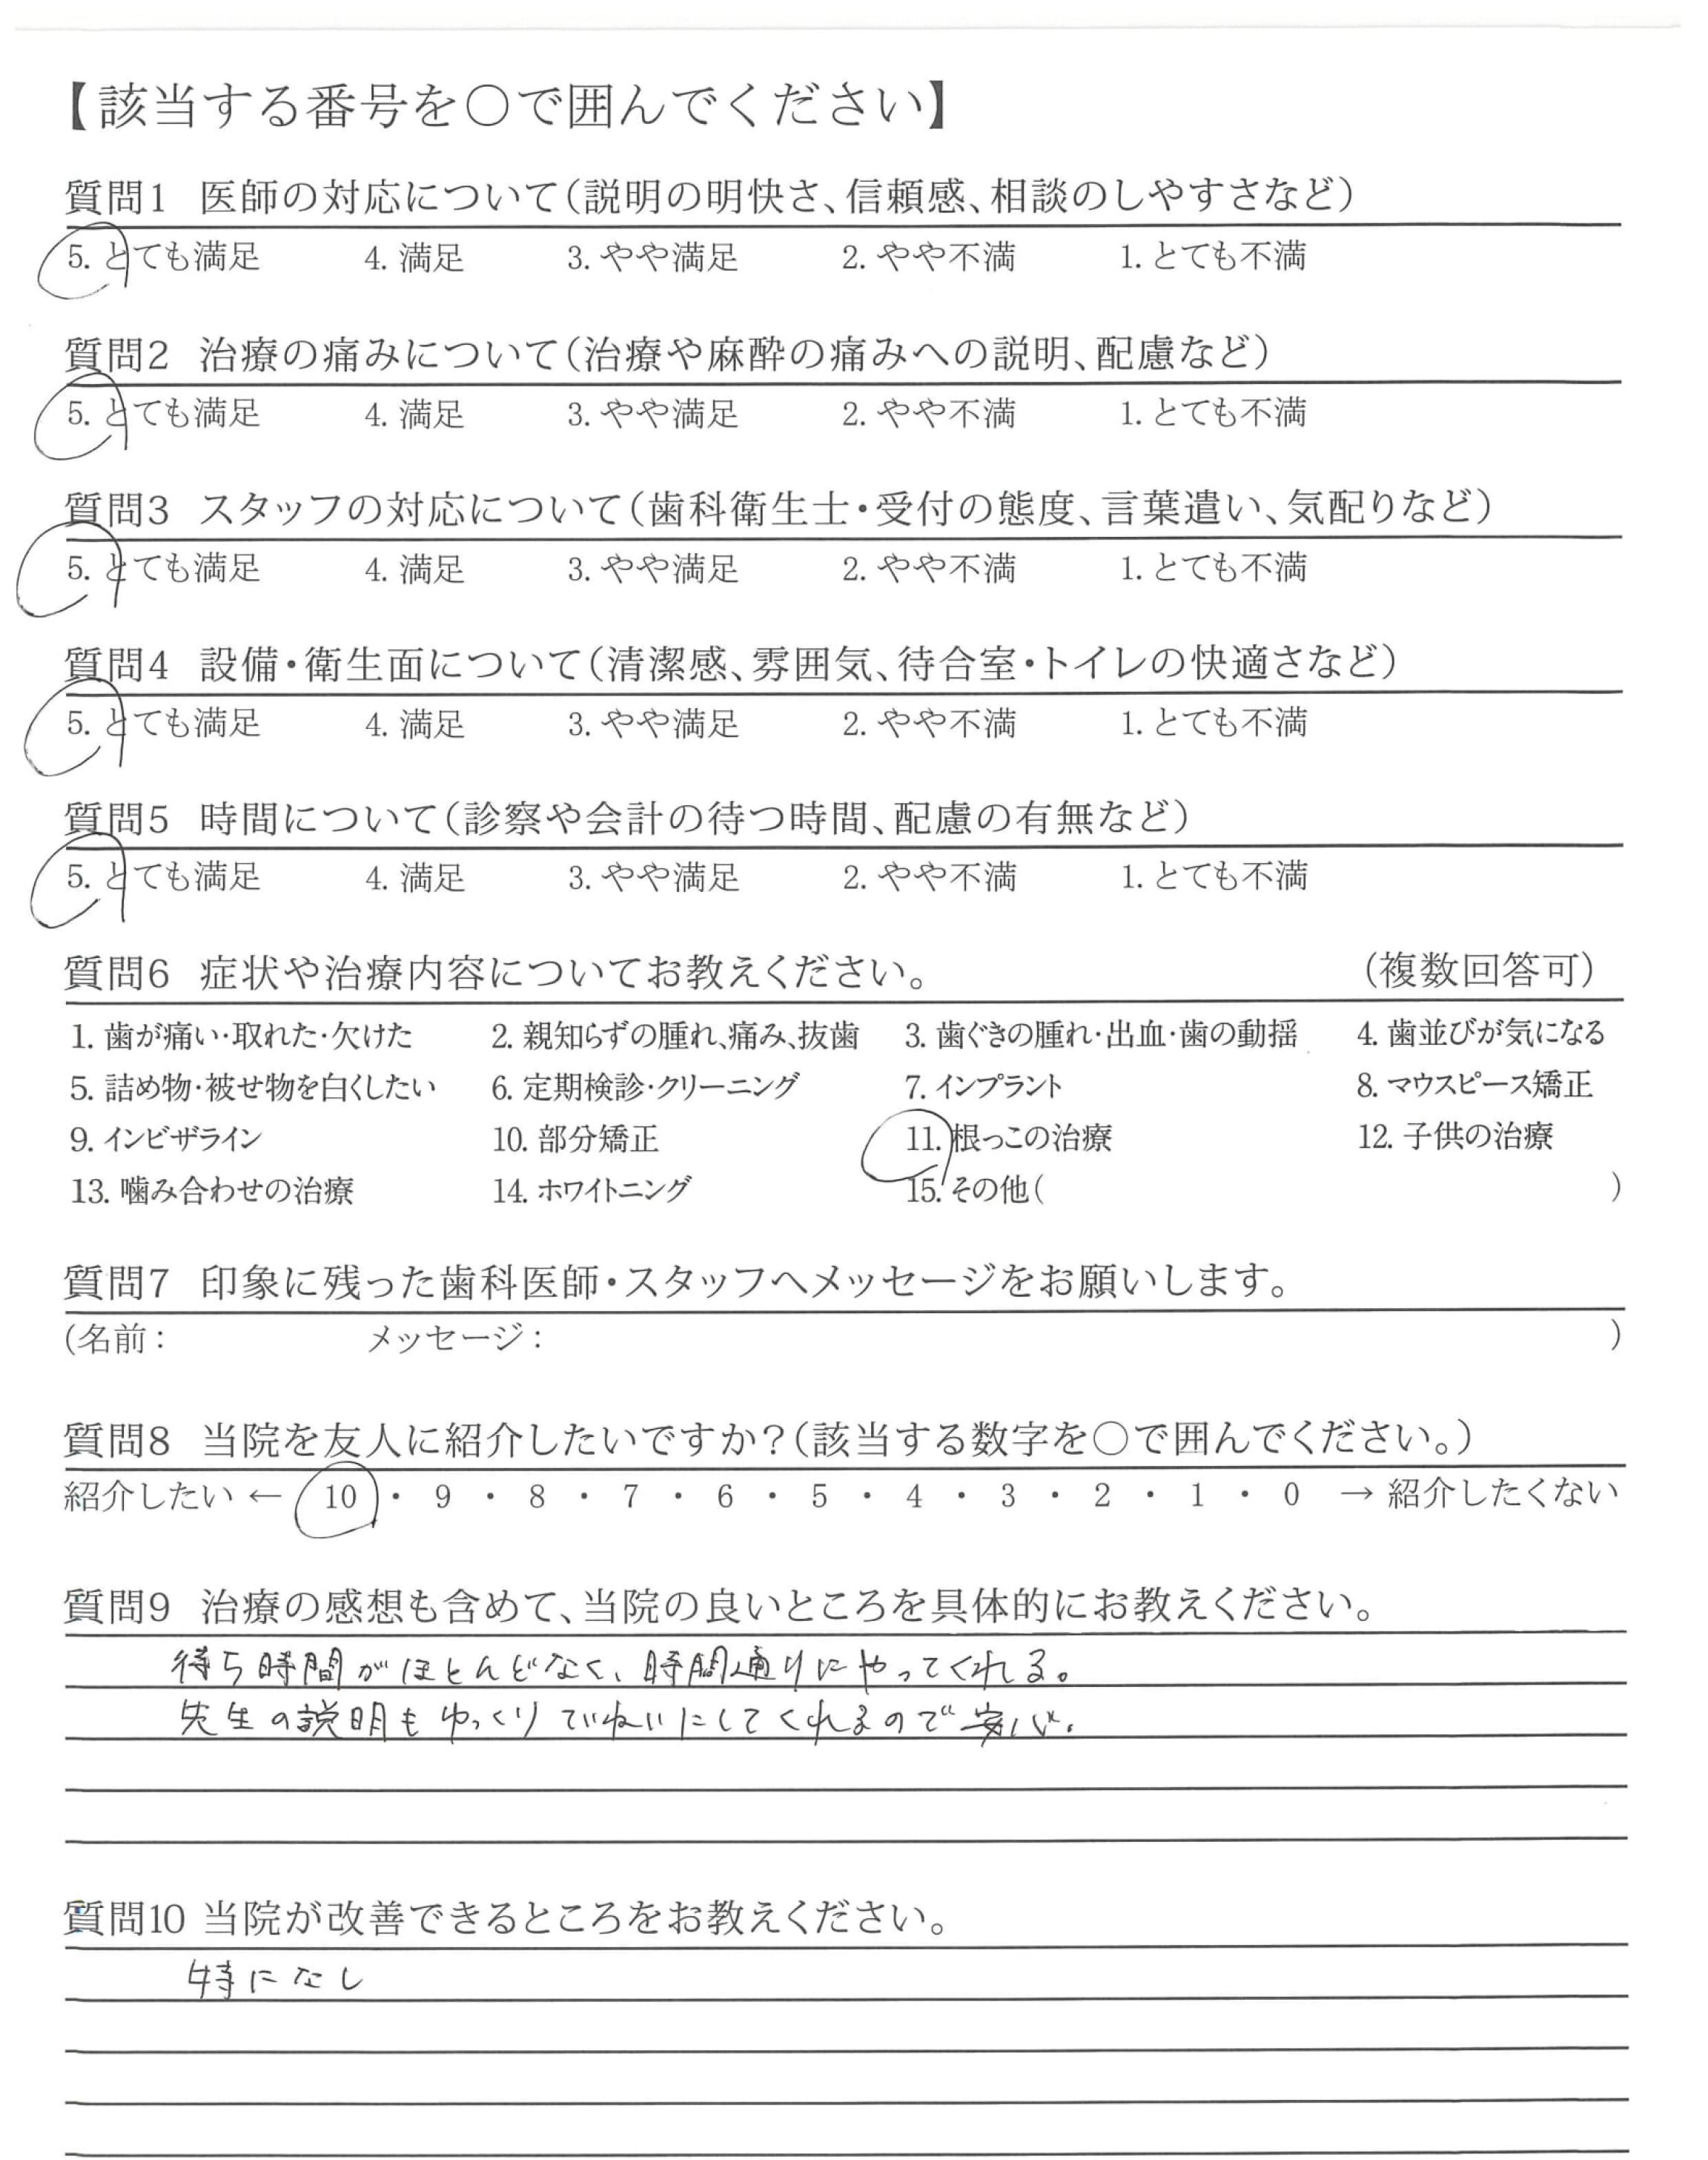 【該当する番号を○で囲んでください】
質問1 医師の対応について(説明の明快さ、信頼感、相談のしやすさなど)
5. とても満足 4. 満足 3. やや満足 2. やや不満 1. とても不満
質問2 治療の痛みについて(治療や麻酔の痛みへの説明、配慮など)
5. とても満足 4. 満足 3. やや満足 2. やや不満 1. とても不満
質問3 スタッフの対応について(歯科衛生士・受付の態度、言葉遣い、気配りなど)
5. とても満足 4. 満足 3. やや満足 2. やや不満 1. とても不満
質問4 設備・衛生面について(清潔感、雰囲気、待合室・トイレの快適さなど)
5. とても満足 4. 満足 3. やや満足 2. やや不満 1. とても不満
質問5 時間について(診察や会計の待つ時間、配慮の有無など)
5. とても満足 4. 満足 3. やや満足 2. やや不満 1. とても不満
質問6 症状や治療内容についてお教えください。 (複数回答可)
1. 歯が痛い・取れた・欠けた 2. 親知らずの腫れ、痛み、抜歯 3. 歯ぐきの腫れ・出血・歯の動揺 4. 歯並びが気になる
5. 詰め物・被せ物を白くしたい 6. 定期検診・クリーニング 7. インプラント 8. マウスピース矯正
9. インビザライン 10. 部分矯正 11. 根っこの治療 12. 子供の治療
13. 噛み合わせの治療 14. ホワイトニング 15. その他( )
質問7 印象に残った歯科医師・スタッフへメッセージをお願いします。
(名前: メッセージ: )
質問8 当院を友人に紹介したいですか?(該当する数字を○で囲んでください。)
紹介したい ← 10 ・ 9 ・ 8 ・ 7 ・ 6 ・ 5 ・ 4 ・ 3 ・ 2 ・ 1 ・ 0 → 紹介したくない
質問9 治療の感想も含めて、当院の良いところを具体的にお教えください。
待ち時間がほとんどなく、時間通りにやってくれる。
先生の説明もゆっくりていねいにしてくれるので安心。
質問10 当院が改善できるところをお教えください。
特になし